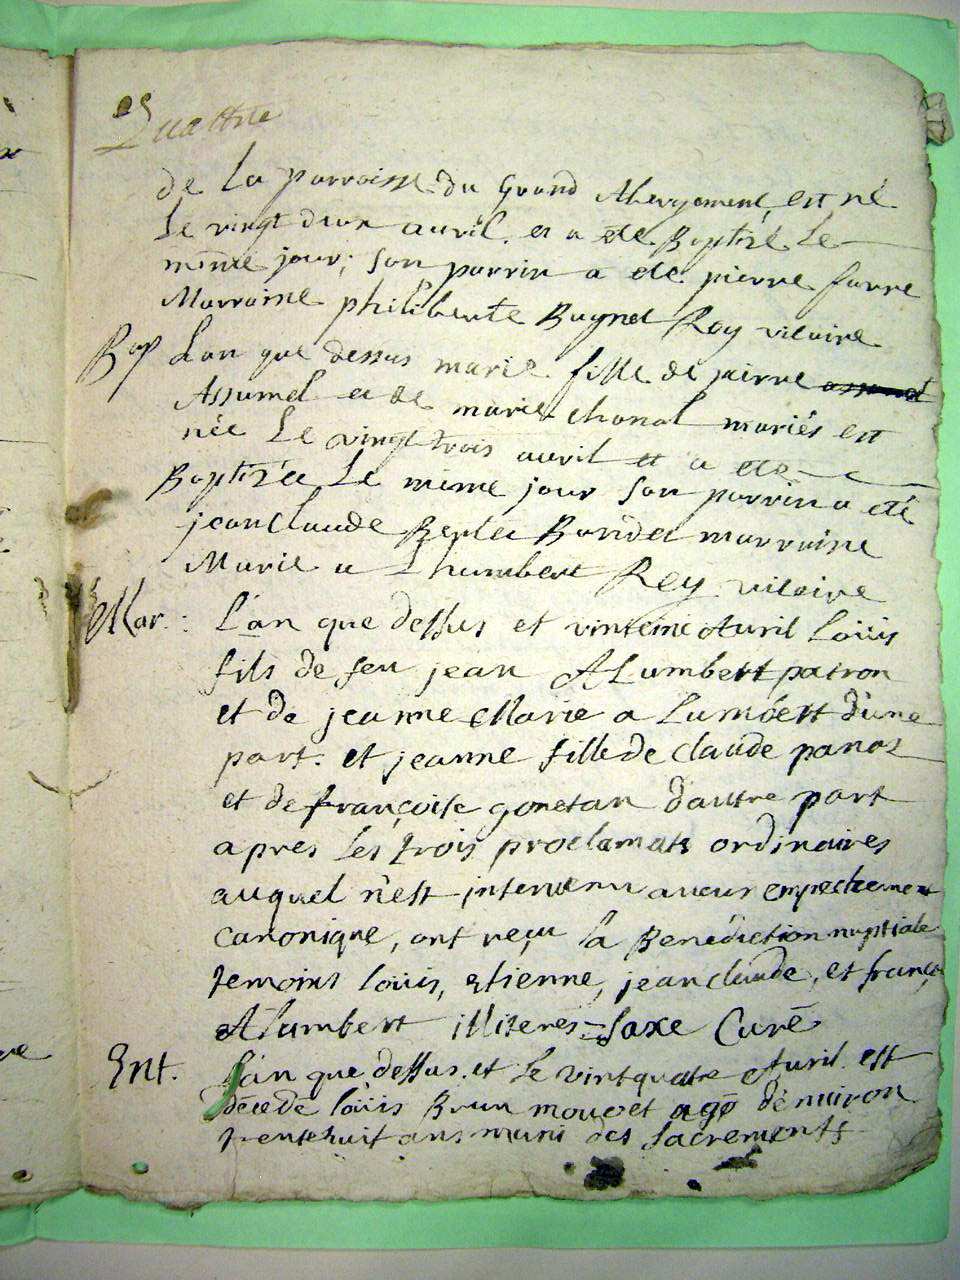 Quattre
de La parroisse du Grand Abergement, est né
Le vingt deux avril et a été Baptizé Le
même jour; son parrin a été pierre favre
Marraine philiberte Buynet Rey vicaire
Bap L'an que dessus marie fille de pierre
Assumel et de marie chanal mariés est
née Le vingt trois avril et a été
Baptizée Le même jour son parrin a été
jean claude Berlet Baridet marraine
Marie a Lhumbert Rey vicaire
Mar: L'an que dessus et vinteme Avril Loüis
fils de feu jean ALumbert patron
et de jeanne Marie a Lumbert d'une
part. et jeanne fille de Claude panaz
et de françoise gonetan d'autre part
apres les trois proclamats ordinaires
auquel n'est intervenu aucun empechement
canonique, ont reçu la Benediction nuptiale
temoins loüis, etienne, jean claude, et franç.
ALumbert illiteres = saxe Curé
Ent. L'an que dessus et le vint quatre Avril est
décédé loüis Brun mouvet agé denviron
trente huit ans muni des sacrements